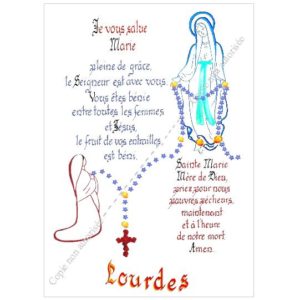 Je vous salue
Marie
pleine de grâce,
le Seigneur est avec vous.
Vous êtes bénie
entre toutes les femmes
et Jésus,
le fruit de vos entrailles,
est béni.
Sainte Marie
Mère de Dieu,
priez pour nous
pauvres pécheurs,
maintenant
et à l'heure
de notre mort
Amen.
Lourdes
Copie non autorisée